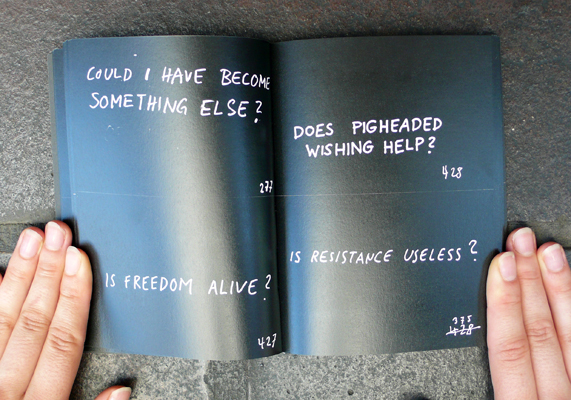 COULD I HAVE BECOME
SOMETHING ELSE?
277
IS FREEDOM ALIVE?
427
DOES PIGHEADED
WISHING HELP?
428
IS RESISTANCE USELESS?
375
428